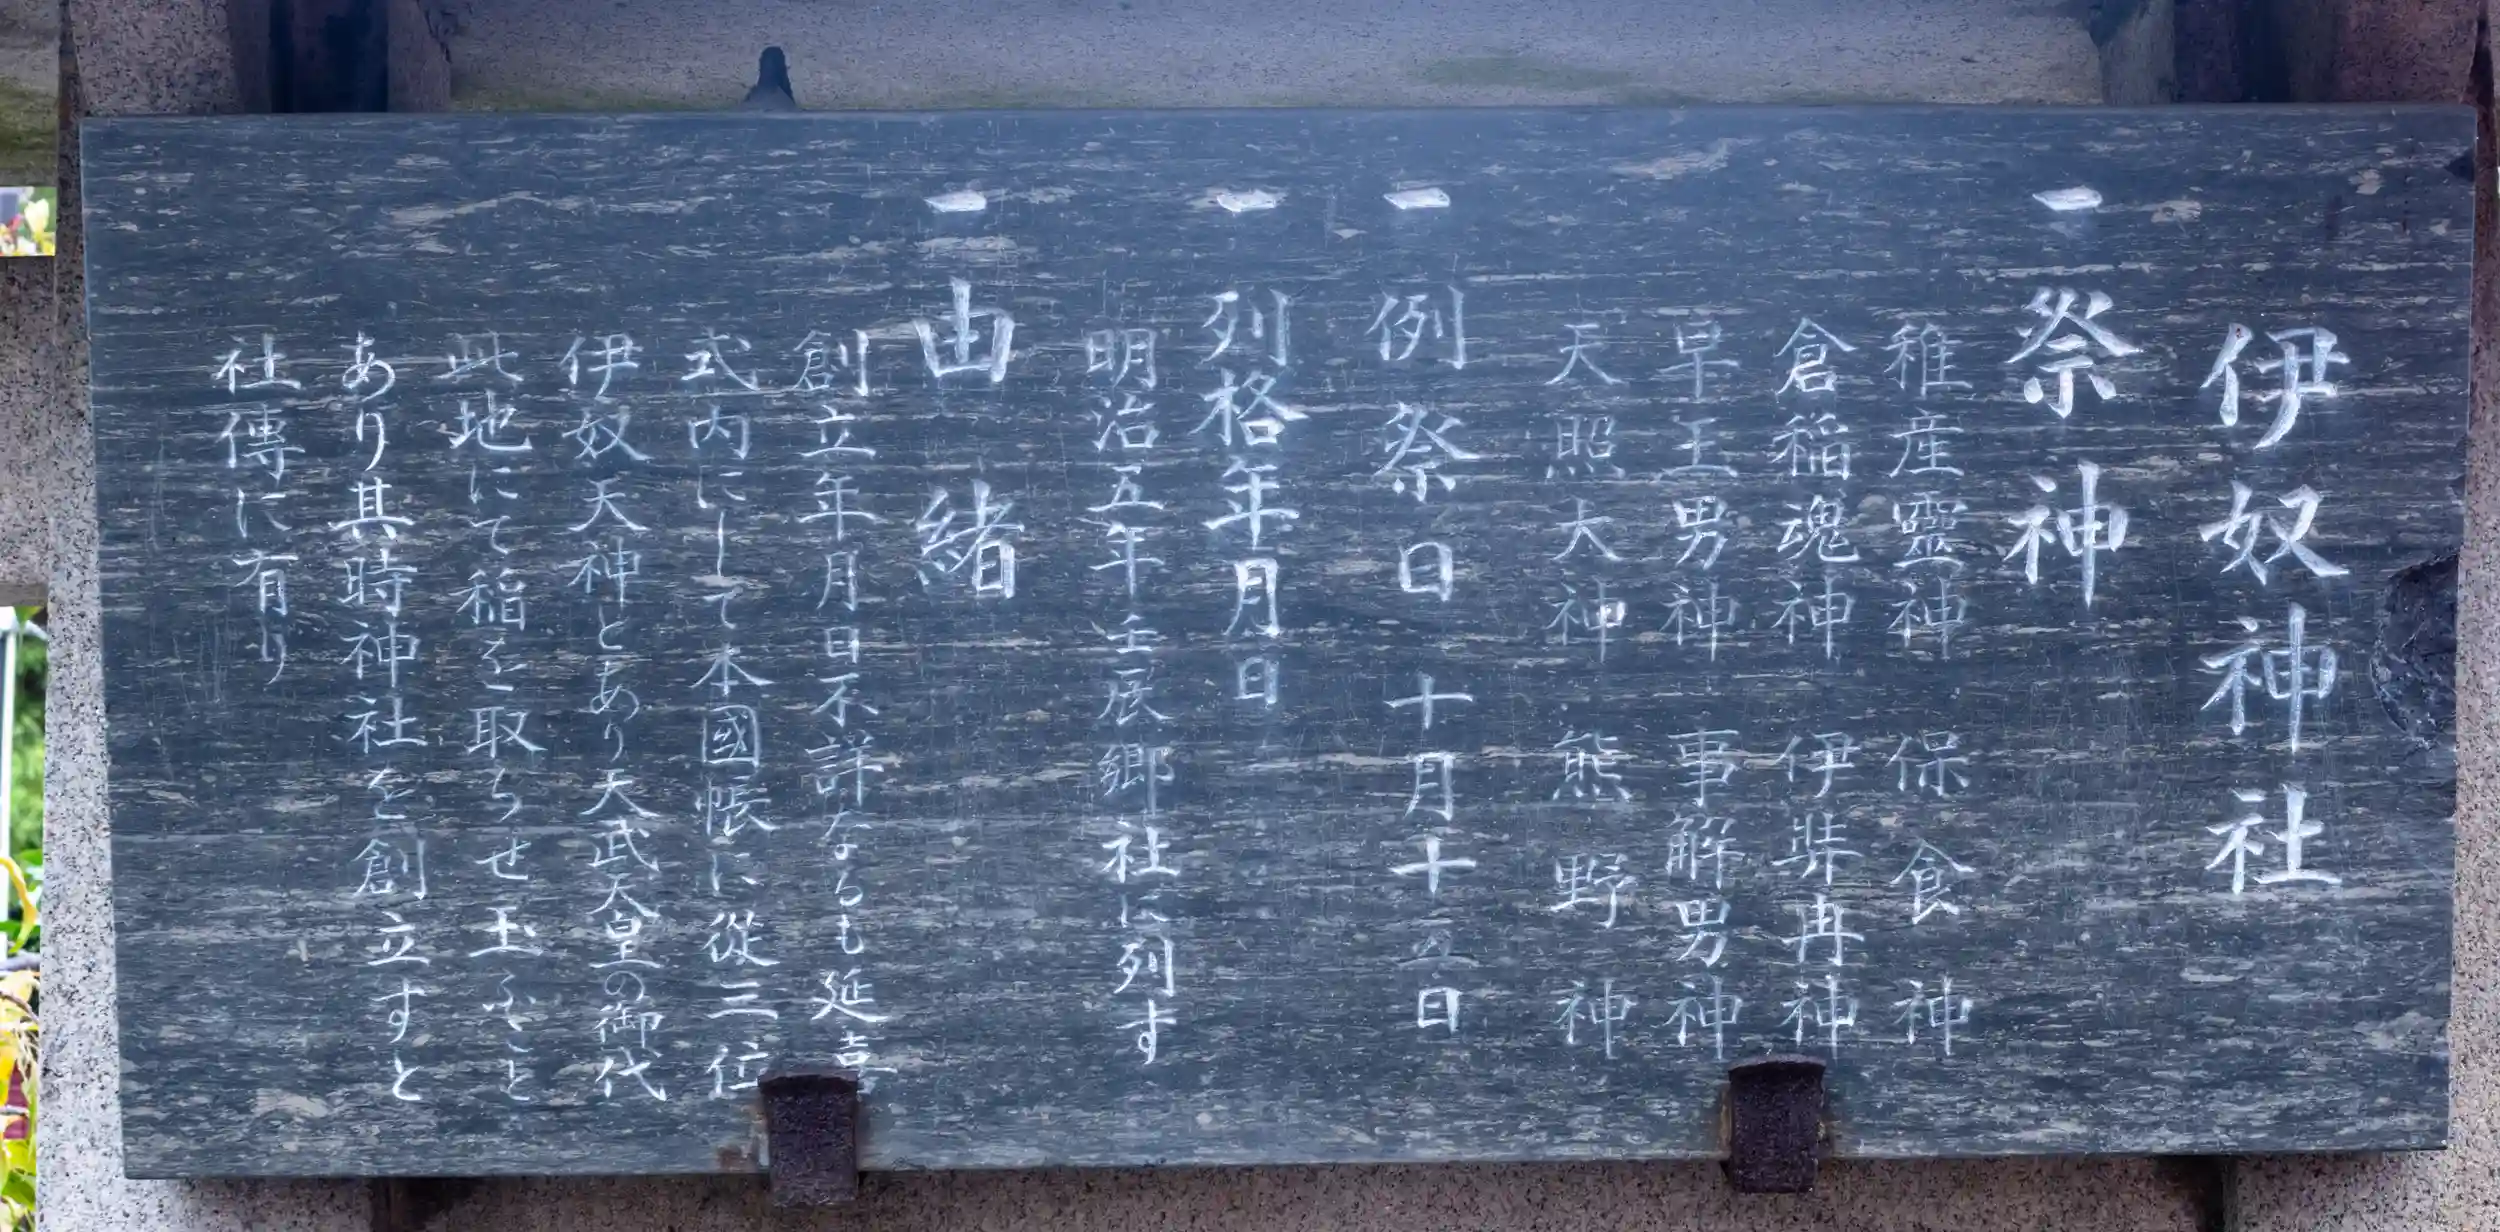 伊奴神社
一 祭神
稚産靈神 保食神
倉稲魂神 伊弉冉神
早玉男神 事解男神
天照大神 熊野神
一 例祭日 十月十五日
一 列格年月日
明治五年壬辰郷社に列す
一 由緒
創立年月日不詳なるも延喜
式内にして本國帳に從三位
伊奴天神とあり天武天皇の御代
此地にて稲を取らせ玉ふこと
あり其時神社を創立すと
社傳に有り